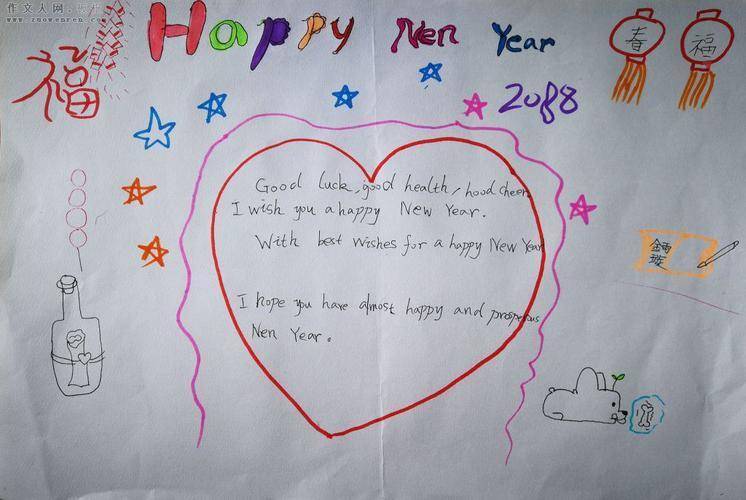 作文人网
www.zuowenren.com
Happy Nen Year
福
春
福
2088
Good luck, good health, hood cheer.
I wish you a happy New Year.
With best wishes for a happy New Year
I hope you have almost happy and prosperous
Nen Year.